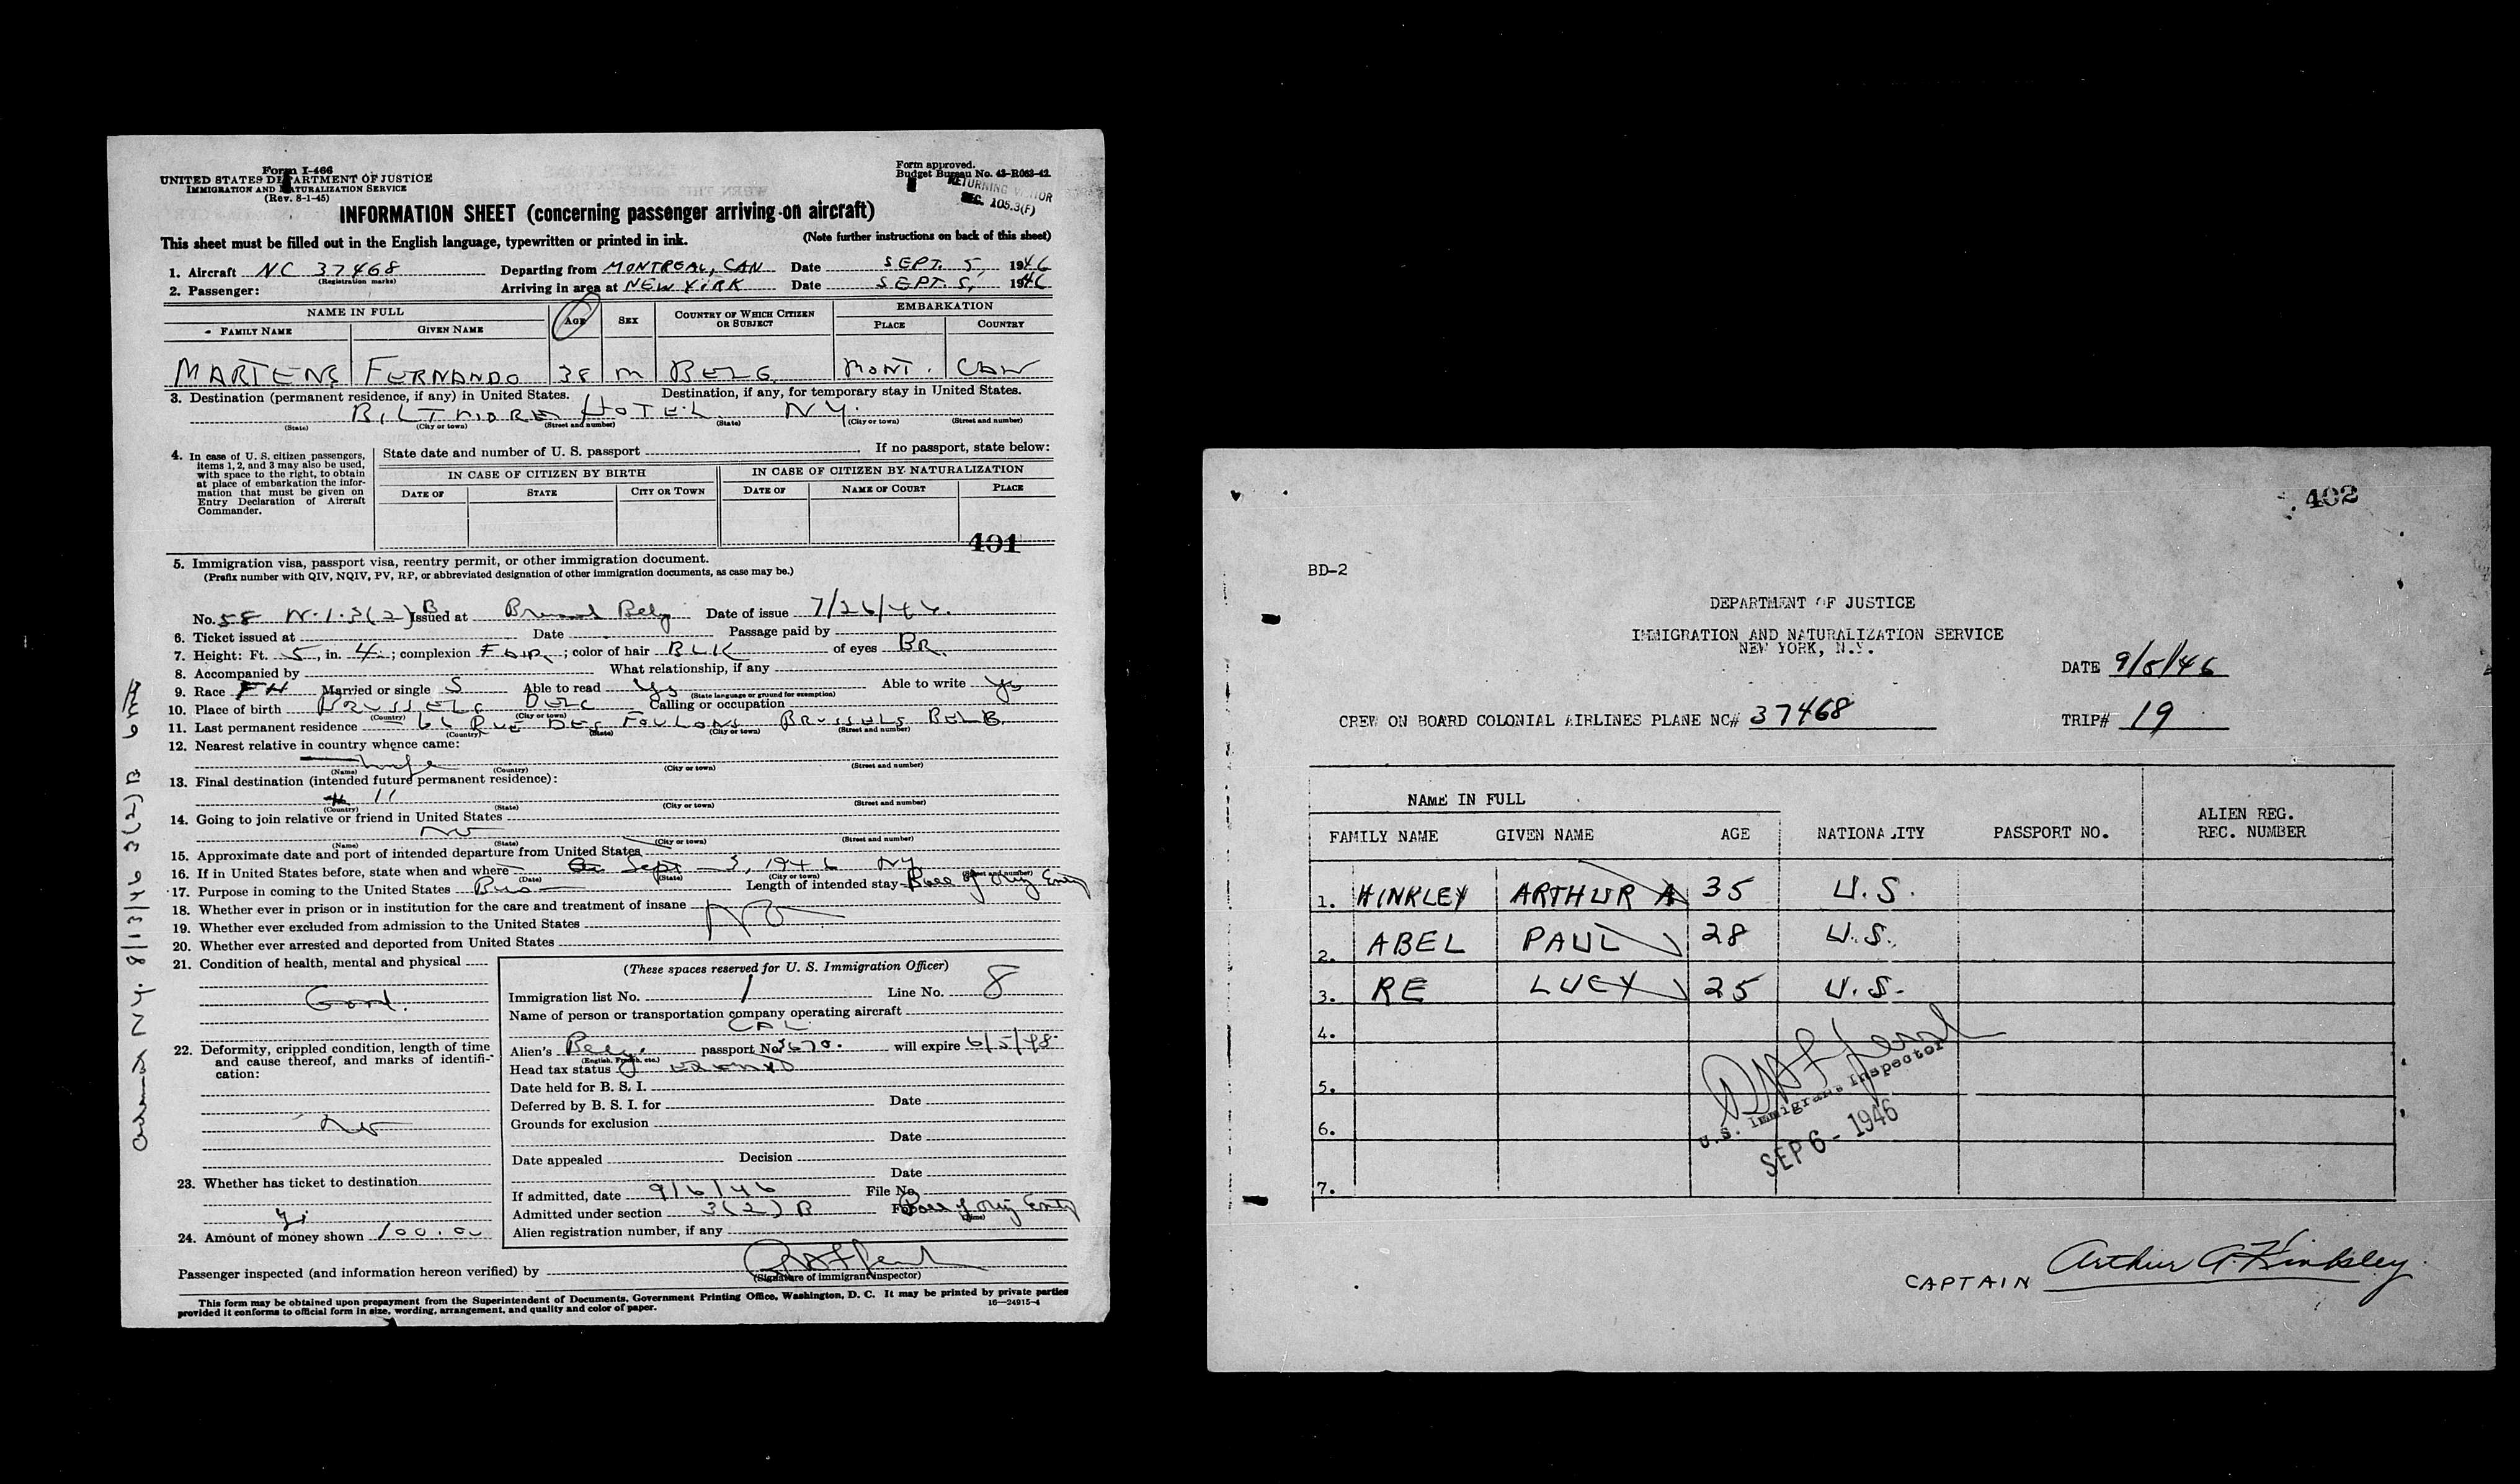 Form I-466
UNITED STATES DEPARTMENT OF JUSTICE
IMMIGRATION AND NATURALIZATION SERVICE
(Rev. 8-1-45)
Form approved.
Budget Bureau No. 43-R063-42.
RETURNING VISITOR
SEC. 105.3(F)
INFORMATION SHEET (concerning passenger arriving on aircraft)
This sheet must be filled out in the English language, typewritten or printed in ink.
(Note further instructions on back of this sheet)
1. Aircraft NC 37468 Departing from MONTREAL, CAN Date SEPT. 5, 1946
(Registration marks)
2. Passenger: Arriving in area at NEW YORK Date SEPT 5, 1946
NAME IN FULL AGE SEX COUNTRY OF WHICH CITIZEN OR SUBJECT EMBARKATION
FAMILY NAME GIVEN NAME PLACE COUNTRY
MARTENS FERNANDO 38 M BELG. MONT. CAN
3. Destination (permanent residence, if any) in United States. Destination, if any, for temporary stay in United States.
BILTMORE HOTEL NY.
(State) (City or town) (Street and number) (State) (City or town) (Street and number)
4. In case of U. S. citizen passengers, items 1, 2, and 3 may also be used, with space to the right, to obtain at place of embarkation the information that must be given on Entry Declaration of Aircraft Commander.
State date and number of U. S. passport If no passport, state below:
IN CASE OF CITIZEN BY BIRTH IN CASE OF CITIZEN BY NATURALIZATION
DATE OF STATE CITY OR TOWN DATE OF NAME OF COURT PLACE
401
5. Immigration visa, passport visa, reentry permit, or other immigration document.
(Prefix number with QIV, NQIV, PV, RP, or abbreviated designation of other immigration documents, as case may be.)
No. 58 N.I. 3(2)B Issued at Belg Date of issue 7/26/46.
6. Ticket issued at Date Passage paid by
7. Height: Ft. 5, in. 4; complexion FAIR; color of hair BLK of eyes BR.
8. Accompanied by What relationship, if any
9. Race FH Married or single S Able to read Yes Able to write Yes
(State language or ground for exemption)
10. Place of birth BRUSSELS BELG Calling or occupation
(Country) (City or town)
11. Last permanent residence 66 RUE DES FOULONS BRUSSELS BELG.
(Country) (State) (City or town) (Street and number)
12. Nearest relative in country whence came:
(Name) (Country) (City or town) (Street and number)
13. Final destination (intended future permanent residence):
"
(Country) (State) (City or town) (Street and number)
14. Going to join relative or friend in United States
No
(Name) (State) (City or town) (Street and number)
15. Approximate date and port of intended departure from United States
16. If in United States before, state when and where Sept 3, 1946 NY
(Date) (State) (City or town) (Street and number)
17. Purpose in coming to the United States Bus Length of intended stay Bal of Orig Entry
18. Whether ever in prison or in institution for the care and treatment of insane
19. Whether ever excluded from admission to the United States No
20. Whether ever arrested and deported from United States
21. Condition of health, mental and physical
Good.
22. Deformity, crippled condition, length of time and cause thereof, and marks of identification:
No
23. Whether has ticket to destination
Yes
24. Amount of money shown 100.00
(These spaces reserved for U. S. Immigration Officer)
Immigration list No. 1 Line No. 8
Name of person or transportation company operating aircraft
CAL
Alien's Belg. passport No. 3670. will expire 6/5/48.
(English, French, etc.)
Head tax status
Date held for B. S. I.
Deferred by B. S. I. for Date
Grounds for exclusion
Date
Date appealed Decision
Date
If admitted, date 9/6/46 File No.
Admitted under section 3(2) B For Bal of Orig Entry
(Time)
Alien registration number, if any
Passenger inspected (and information hereon verified) by
(Signature of immigrant inspector)
This form may be obtained upon prepayment from the Superintendent of Documents, Government Printing Office, Washington, D. C. It may be printed by private parties
provided it conforms to official form in size, wording, arrangement, and quality and color of paper.
16—24915-4
Admitted N.Y. 8/13/46 3(2)B 6 mth
402
BD-2
DEPARTMENT OF JUSTICE
IMMIGRATION AND NATURALIZATION SERVICE
NEW YORK, N.Y.
DATE 9/5/46
CREW ON BOARD COLONIAL AIRLINES PLANE NC# 37468 TRIP# 19
NAME IN FULL
FAMILY NAME GIVEN NAME AGE NATIONALITY PASSPORT NO. ALIEN REG. REC. NUMBER
1. HINKLEY ARTHUR A 35 U.S.
2. ABEL PAUL 28 U.S.
3. RE LUCY 25 U.S.
4.
5.
6.
7.
U.S. Immigrant Inspector
SEP 6 - 1946
CAPTAIN Arthur A. Hinkley